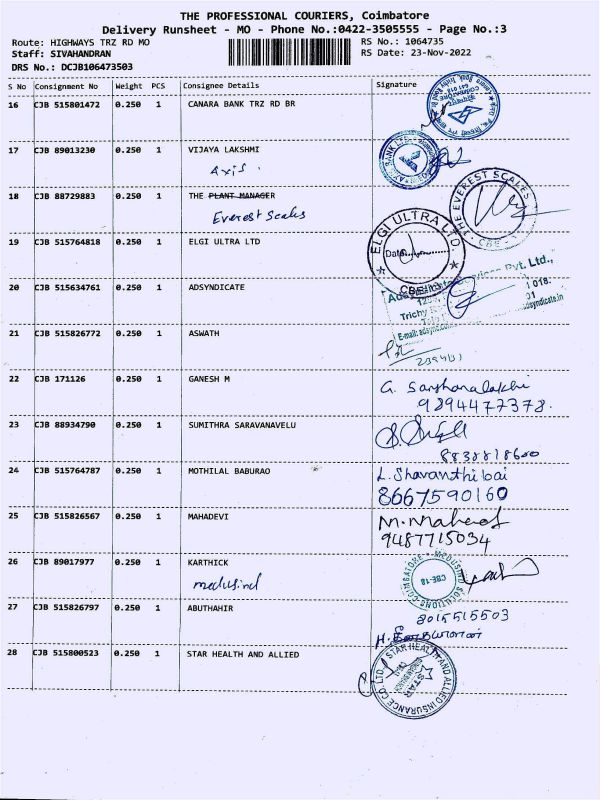 THE PROFESSIONAL COURIERS, Coimbatore
Delivery Runsheet - MO - Phone No.:0422-3505555 - Page No.:3
Route: HIGHWAYS TRZ RD MO
RS No.: 1064735
Staff: SIVAHANDRAN
RS Date: 23-Nov-2022
DRS No.: DCJB106473503
S No Consignment No Weight PCS Consignee Details Signature
16 CJB 515801472 0.250 1 CANARA BANK TRZ RD BR
17 CJB 89013230 0.250 1 VIJAYA LAKSHMI
Axis.
18 CJB 88729883 0.250 1 THE PLANT MANAGER
Everest Scales
THE EVEREST SCALES
CBE
19 CJB 515764818 0.250 1 ELGI ULTRA LTD
ELGI ULTRA LTD.
Date
20 CJB 515634761 0.250 1 ADSYNDICATE
Pvt. Ltd.,
Trichy
21 CJB 515826772 0.250 1 ASWATH
22 CJB 171126 0.250 1 GANESH M
9894477378.
23 CJB 88934790 0.250 1 SUMITHRA SARAVANAVELU
8838818600
24 CJB 515764787 0.250 1 MOTHILAL BABURAO
L. Shavanthi bai
8667590160
25 CJB 515826567 0.250 1 MAHADEVI
9487715034
26 CJB 89017977 0.250 1 KARTHICK
medusind
MEDUSIND SOLUTIONS COIMBATORE
CBE-18
27 CJB 515826797 0.250 1 ABUTHAHIR
8015515503
28 CJB 515800523 0.250 1 STAR HEALTH AND ALLIED
STAR HEALTH AND ALLIED INSURANCE CO. LTD.
STAR